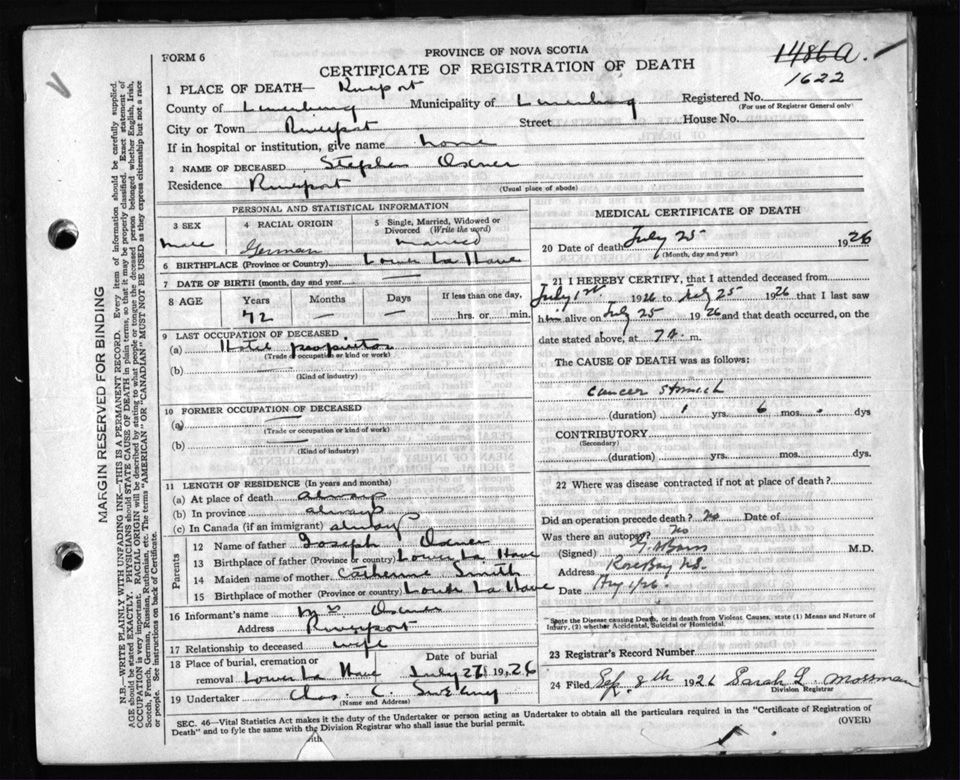 PROVINCE OF NOVA SCOTIA
FORM 6
CERTIFICATE OF REGISTRATION OF DEATH
1486a.
1622
1 PLACE OF DEATH— Riverport
County of Lunenburg Municipality of Lunenburg Registered No.
(For use of Registrar General only)
City or Town Riverport Street House No.
If in hospital or institution, give name home
2 NAME OF DECEASED Stephen Oxner
Residence Riverport
(Usual place of abode)
PERSONAL AND STATISTICAL INFORMATION
3 SEX Male
4 RACIAL ORIGIN German
5 Single, Married, Widowed or Divorced (Write the word) Married
6 BIRTHPLACE (Province or Country) Lower La Have
7 DATE OF BIRTH (month, day and year) —
8 AGE Years Months Days If less than one day,
72 — — hrs. or min.
9 LAST OCCUPATION OF DECEASED
(a) Hotel propietor
(Trade or occupation or kind or work)
(b) —
(Kind of industry)
10 FORMER OCCUPATION OF DECEASED
(a) —
(Trade or occupation or kind of work)
(b) —
(Kind of industry)
11 LENGTH OF RESIDENCE (In years and months)
(a) At place of death always
(b) In province always
(c) In Canada (if an immigrant) always
Parents
12 Name of father Joseph Oxner
13 Birthplace of father (Province or country) Lower La Have
14 Maiden name of mother Catherine Smith
15 Birthplace of mother (Province or Country) Lower La Have
16 Informant's name Mrs Oxner
Address Riverport
17 Relationship to deceased wife
18 Place of burial, cremation or removal Lower La Have Date of burial July 27 1926
19 Undertaker Chas. C.
(Name and Address)
MEDICAL CERTIFICATE OF DEATH
20 Date of death July 25 1926
(Month, day and year)
21 I HEREBY CERTIFY, that I attended deceased from
July 1st 1926 to July 25 1926 that I last saw
him alive on July 25 1926 and that death occurred, on
date stated above, at 7 a. m.
The CAUSE OF DEATH was as follows:
Cancer Stomach
(duration) 1 yrs. 6 mos. dys
CONTRIBUTORY
(Secondary)
(duration) yrs. mos. dys.
22 Where was disease contracted if not at place of death?
Did an operation precede death? No Date of
Was there an autopsy? No
(Signed) M.D.
Address Rose Bay N.S.
Date Aug 1/26
State the Disease causing Death, or in death from Violent Causes, state (1) Means and Nature of
Injury, (2) whether Accidental, Suicidal or Homicidal.
23 Registrar's Record Number
24 Filed Sep. 8th 1926 Sarah L. Mossman
Division Registrar
SEC. 46—Vital Statistics Act makes it the duty of the Undertaker or person acting as Undertaker to obtain all the particulars required in the "Certificate of Registration of
Death" and to fyle the same with the Division Registrar who shall issue the burial permit.
(OVER)
MARGIN RESERVED FOR BINDING
N.B.—WRITE PLAINLY WITH UNFADING INK—THIS IS A PERMANENT RECORD. Every item of information should be carefully supplied.
AGE should be stated EXACTLY. PHYSICIANS should STATE CAUSE OF DEATH in plain terms, so that it may be properly classified. Exact statement of
OCCUPATION is very important. RACIAL ORIGIN will be described by stating to what people or tongue the deceased person belonged whether English, Irish,
Scotch, French, German, Russian, Ruthenian, etc. The terms "AMERICAN" OR "CANADIAN" MUST NOT BE USED as they express citizenship but not a race
or people. See instructions on back of Certificate.